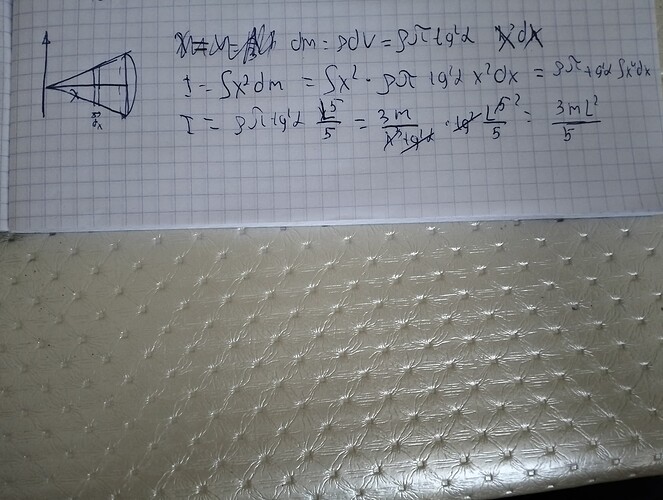 dm = ρdV = ρπ tg²α x²dx
I = ∫x²dm = ∫x² · ρπ tg²α x²dx = ρπ tg²α ∫x⁴dx
x
dx
I = ρπ tg²α L⁵/5 = 3m/L³tg²α · tg² L⁵/5 = 3mL²/5